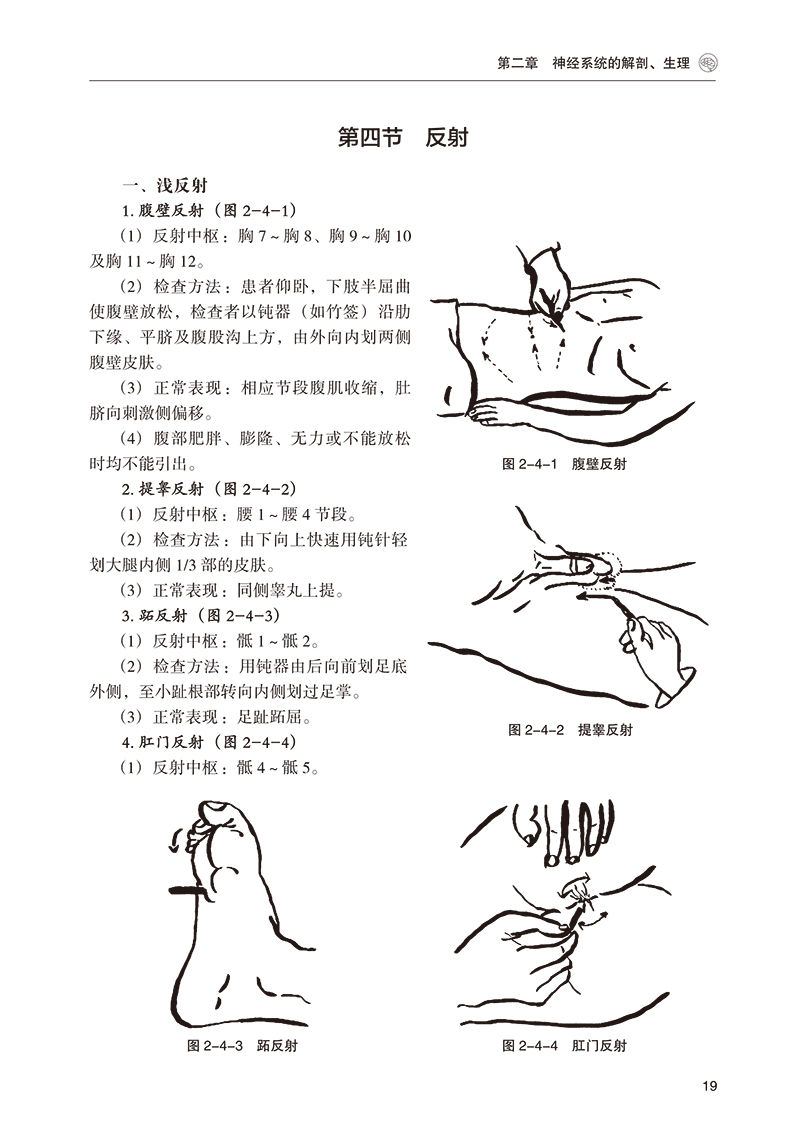 第二章　神经系统的解剖、生理
第四节　反射
一、浅反射
1. 腹壁反射（图 2-4-1）
（1）反射中枢：胸 7 ~ 胸 8、胸 9 ~ 胸 10
及胸 11 ~ 胸 12。
（2）检查方法：患者仰卧，下肢半屈曲
使腹壁放松，检查者以钝器（如竹签）沿肋
下缘、平脐及腹股沟上方，由外向内划两侧
腹壁皮肤。
（3）正常表现：相应节段腹肌收缩，肚
脐向刺激侧偏移。
（4）腹部肥胖、膨隆、无力或不能放松
时均不能引出。
2. 提睾反射（图 2-4-2）
（1）反射中枢：腰 1 ~ 腰 4 节段。
（2）检查方法：由下向上快速用钝针轻
划大腿内侧 1/3 部的皮肤。
（3）正常表现：同侧睾丸上提。
3. 跖反射（图 2-4-3）
（1）反射中枢：骶 1 ~ 骶 2。
（2）检查方法：用钝器由后向前划足底
外侧，至小趾根部转向内侧划过足掌。
（3）正常表现：足趾跖屈。
4. 肛门反射（图 2-4-4）
（1）反射中枢：骶 4 ~ 骶 5。
图 2-4-1　腹壁反射
图 2-4-2　提睾反射
图 2-4-3　跖反射
图 2-4-4　肛门反射
19